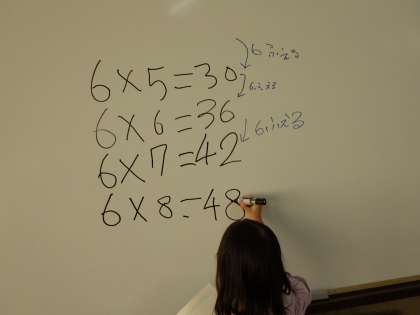 6×5=30
6ふえる
6×6=36
6×7=42
6ふえる
6×8=48